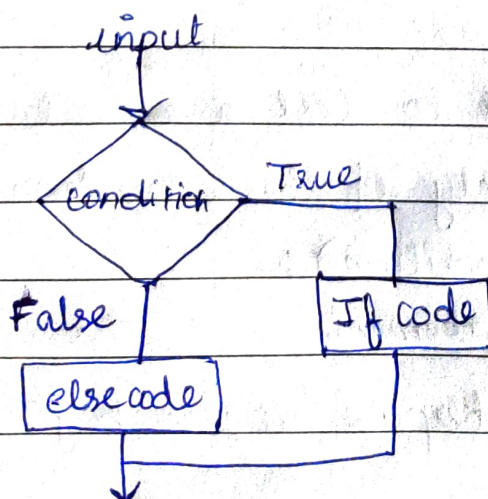 input
condition
True
False
If code
else code